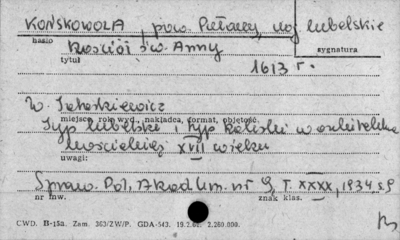 KOŃSKOWOLA, pow. Puławy, woj. lubelskie
hasło
Kościół św. Anny
sygnatura
tytuł
1613 r.
W. Tatarkiewicz
miejsce, rok wyd., nakładca, format, objętość.
Typ lubelski i typ kaliski w architekturze
kościelnej XVII wieku
uwagi:
Spraw. Pol. Akad. Um. nr 9, T. XXXX, 1934 s.9
nr inw.
znak klas.
CWD. B-15a. Zam. 363/ZW/P. GDA-543. 19.2.62. 2.260.000.